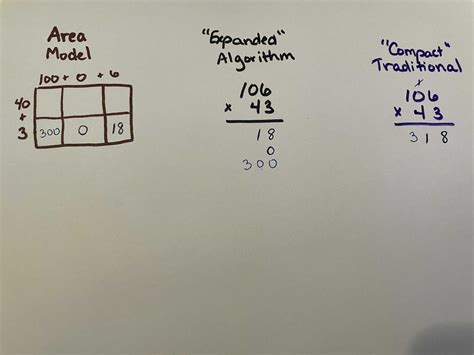 Area
Model
100 + 0 + 6
40
+
3
300 0 18
"Expanded"
Algorithm
106
× 43
18
0
300
"Compact"
Traditional
1
106
× 43
318